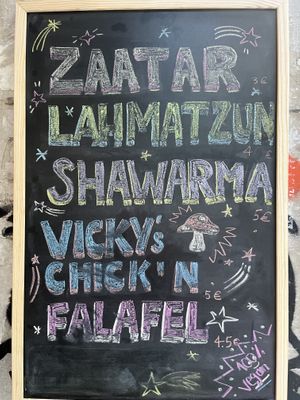 ZAATAR
3€
LAHMATZUN
4€
SHAWARMA
5€
VICKY's
CHICK'N
5€
FALAFEL
4.5€
100%
vegan